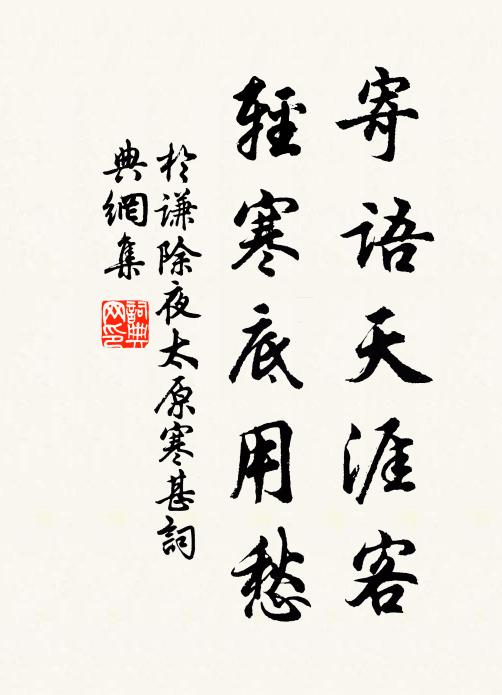 寄語天涯客
輕寒底用愁
於謙除夜太原寒甚詞
典網集
詞典
网印